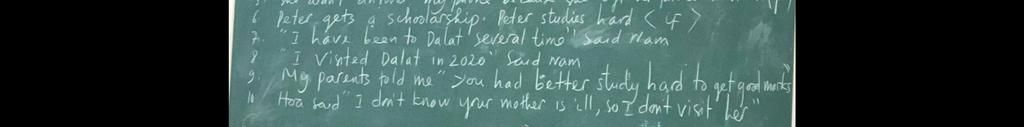 6 Peter gets a schoolarship. Peter studies hard < if >
7. "I have been to Dalat several time" said Nam
8 "I visited Dalat in 2020" said Nam
9. My parents told me "you had better study hard to get good marks"
10 Hoa said "I don't know your mother is ill, so I don't visit her"